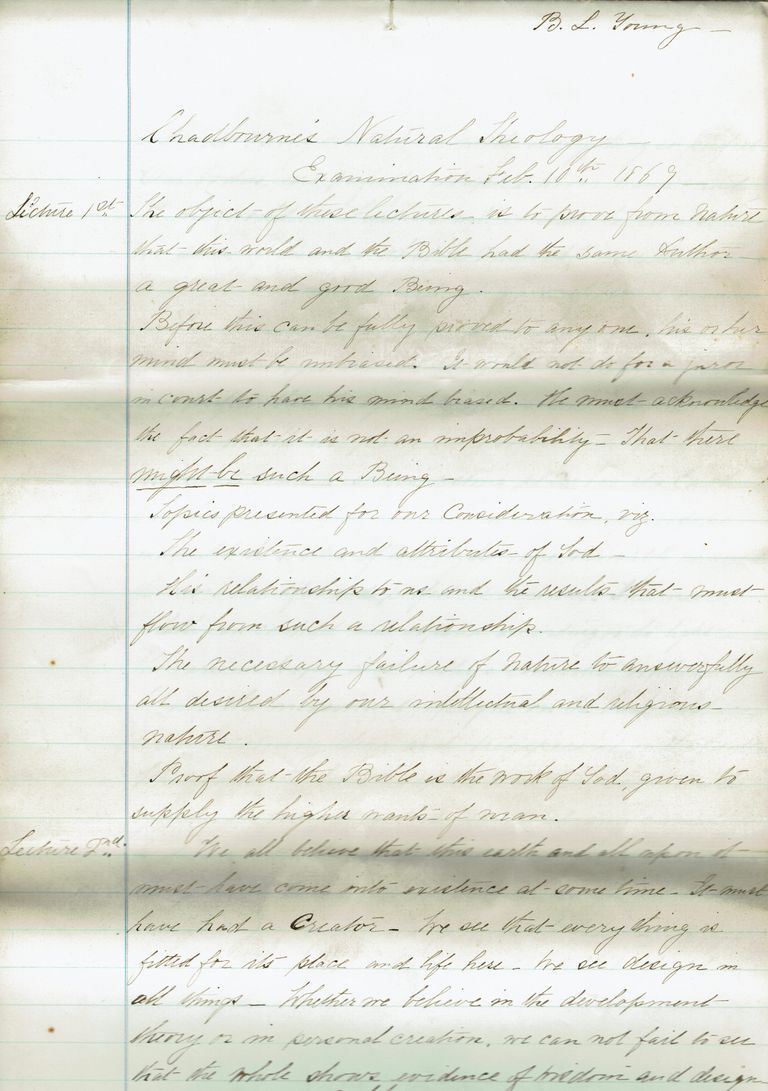 B. L. Young —
Chadbourne's Natural Theology —
Examination Feb. 10th 1869
Lecture 1st. The object of these lectures is to prove from Nature
that this world and the Bible had the same Author
a great and good Being.
Before this can be fully proved to any one, his or her
mind must be unbiased. It would not do for a juror
in court to have his mind biased. He must acknowledge
the fact that it is not an improbability — That there
might be such a Being —
Topics presented for our Consideration, viz.
The existence and attributes of God —
His relationship to us and the results that must
flow from such a relationship.
The necessary failure of Nature to answer fully
all desired by our intellectual and religious
nature.
Proof that the Bible is the work of God, given to
supply the higher wants of man.
Lecture 2nd. We all believe that this earth and all upon it
must have come into existence at some time — It must
have had a Creator — We see that every thing is
fitted for its place and life here — We see design in
all things — Whether we believe in the development
theory or in personal creation, we can not fail to see
that the whole shows evidence of wisdom and design